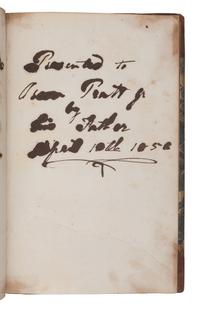 Presented to
Pratt Jr
by
his Father
April 10th 1850